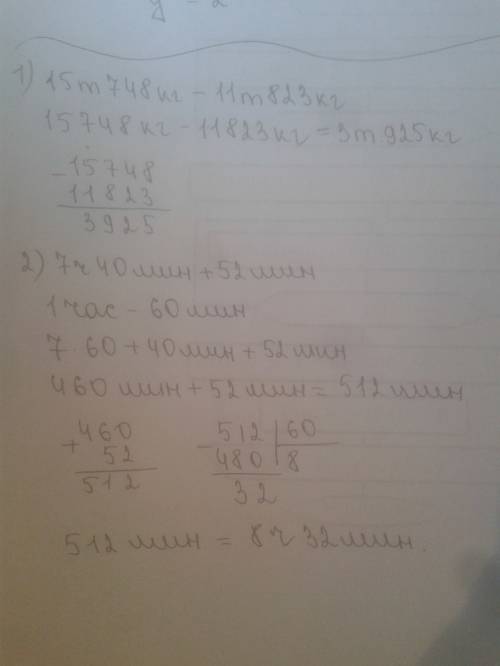 1) 15т748кг - 11т823кг
15748кг - 11823кг = 3т925кг
- 15748
11823
3925
2) 7ч 40 мин + 52 мин
1 час - 60 мин
7 · 60 + 40 мин + 52 мин
460 мин + 52 мин = 512 мин
+ 460
52
512
- 512 60
480 8
32
512 мин = 8ч 32 мин.